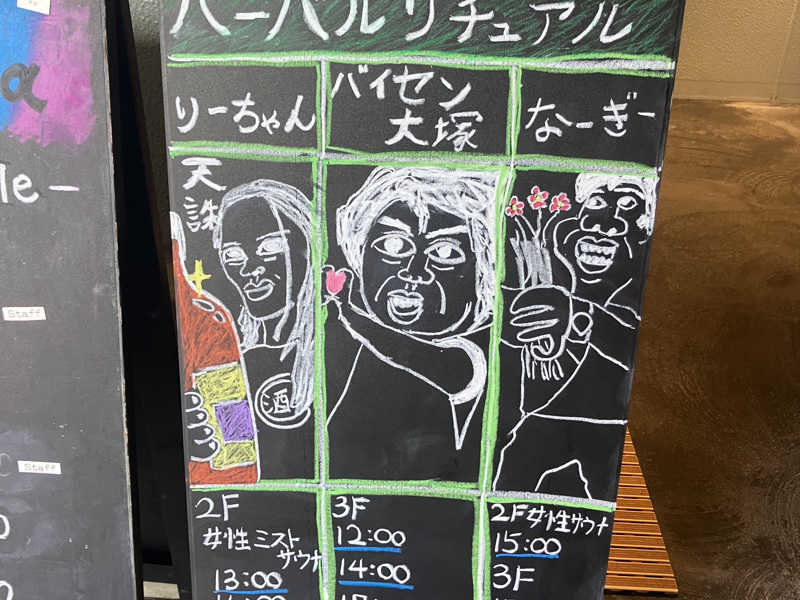 α
le-
Staff
Staff
ハーバルリチュアル
りーちゃん
バイセン
大塚
なーぎー
天
誅
酒
2F
女性ミスト
サウナ
13:00
3F
12:00
14:00
2F女性サウナ
15:00
3F